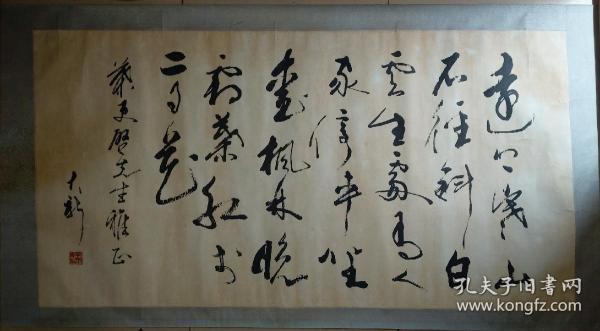 遠上寒山
石徑斜白
雲生處有人
家停車坐
愛楓林晚
霜葉紅於
二月花
先生雅正
孔夫子旧书网
www.kongfz.com